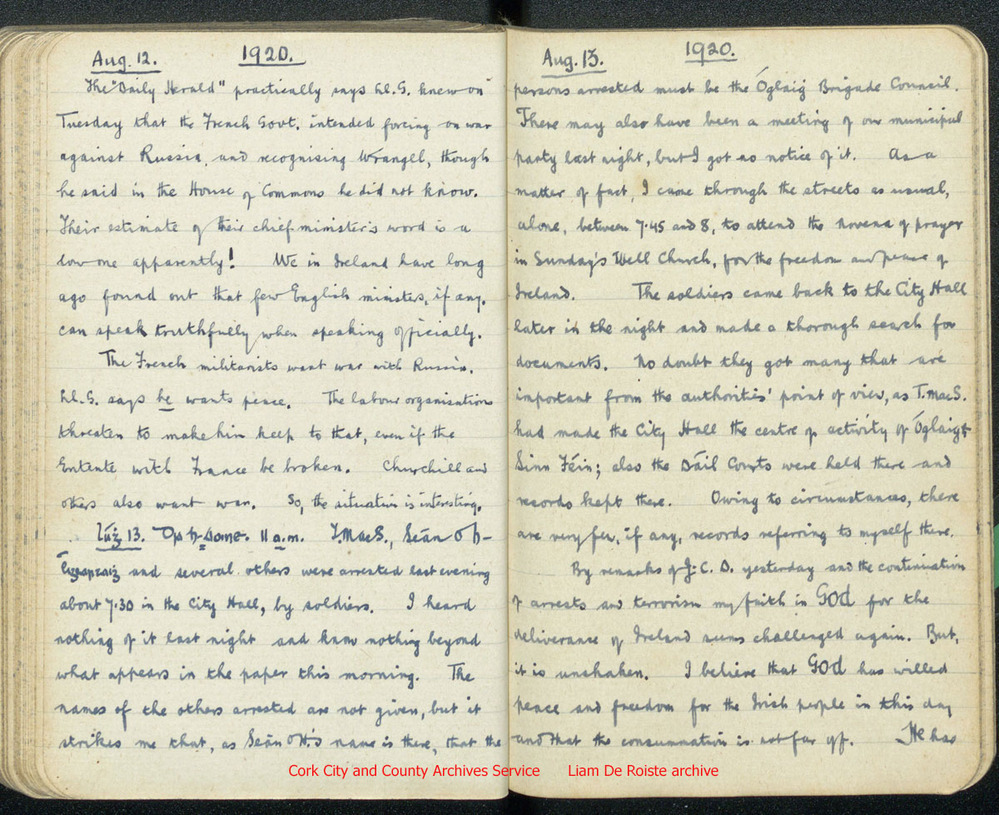 Aug. 12. 1920.
The "Daily Herald" practically says Ll.G. knew on
Tuesday that the French Govt. intended forcing on war
against Russia, and recognising Wrangel, though
he said in the House of Commons he did not know.
Their estimate of their chief minister's word is a
low one apparently! We in Ireland have long
ago found out that few English ministers, if any,
can speak truthfully when speaking officially.
The French militarists want war with Russia.
Ll.G. says he wants peace. The labour organisations
threaten to make him keep to that, even if the
Entente with France be broken. Churchill and
others also want war. So, the situation is interesting.
13. 11 a.m. T. MacS., Seán Ó h-
and several others were arrested last evening
about 7.30 in the City Hall, by soldiers. I heard
nothing of it last night and know nothing beyond
what appears in the paper this morning. The
names of the others arrested are not given, but it
strikes me that, as Seán name is there, that the
Aug. 13. 1920.
persons arrested must be the Óglaig Brigade Council.
There may also have been a meeting of our municipal
party last night, but I got no notice of it. As a
matter of fact, I came through the streets as usual,
alone, between 7.45 and 8, to attend the novena of prayer
in Sunday's Well Church, for the freedom and peace of
Ireland. The soldiers came back to the City Hall
later in the night and made a thorough search for
documents. No doubt they got many that are
important from the authorities' point of view, as T. MacS.
had made the City Hall the centre of activity of Óglaig &
Sinn Féin; also the Dáil Courts were held there and
records kept there. Owing to circumstances, there
are very few, if any, records referring to myself there.
By remarks of J.C.D. yesterday and the continuation
of arrests and terrorism my faith in God for the
deliverance of Ireland seems challenged again. But,
it is unshaken. I believe that God has willed
peace and freedom for the Irish people in this day
and that the consummation is not far off. He has
Cork City and County Archives Service Liam De Roiste archive